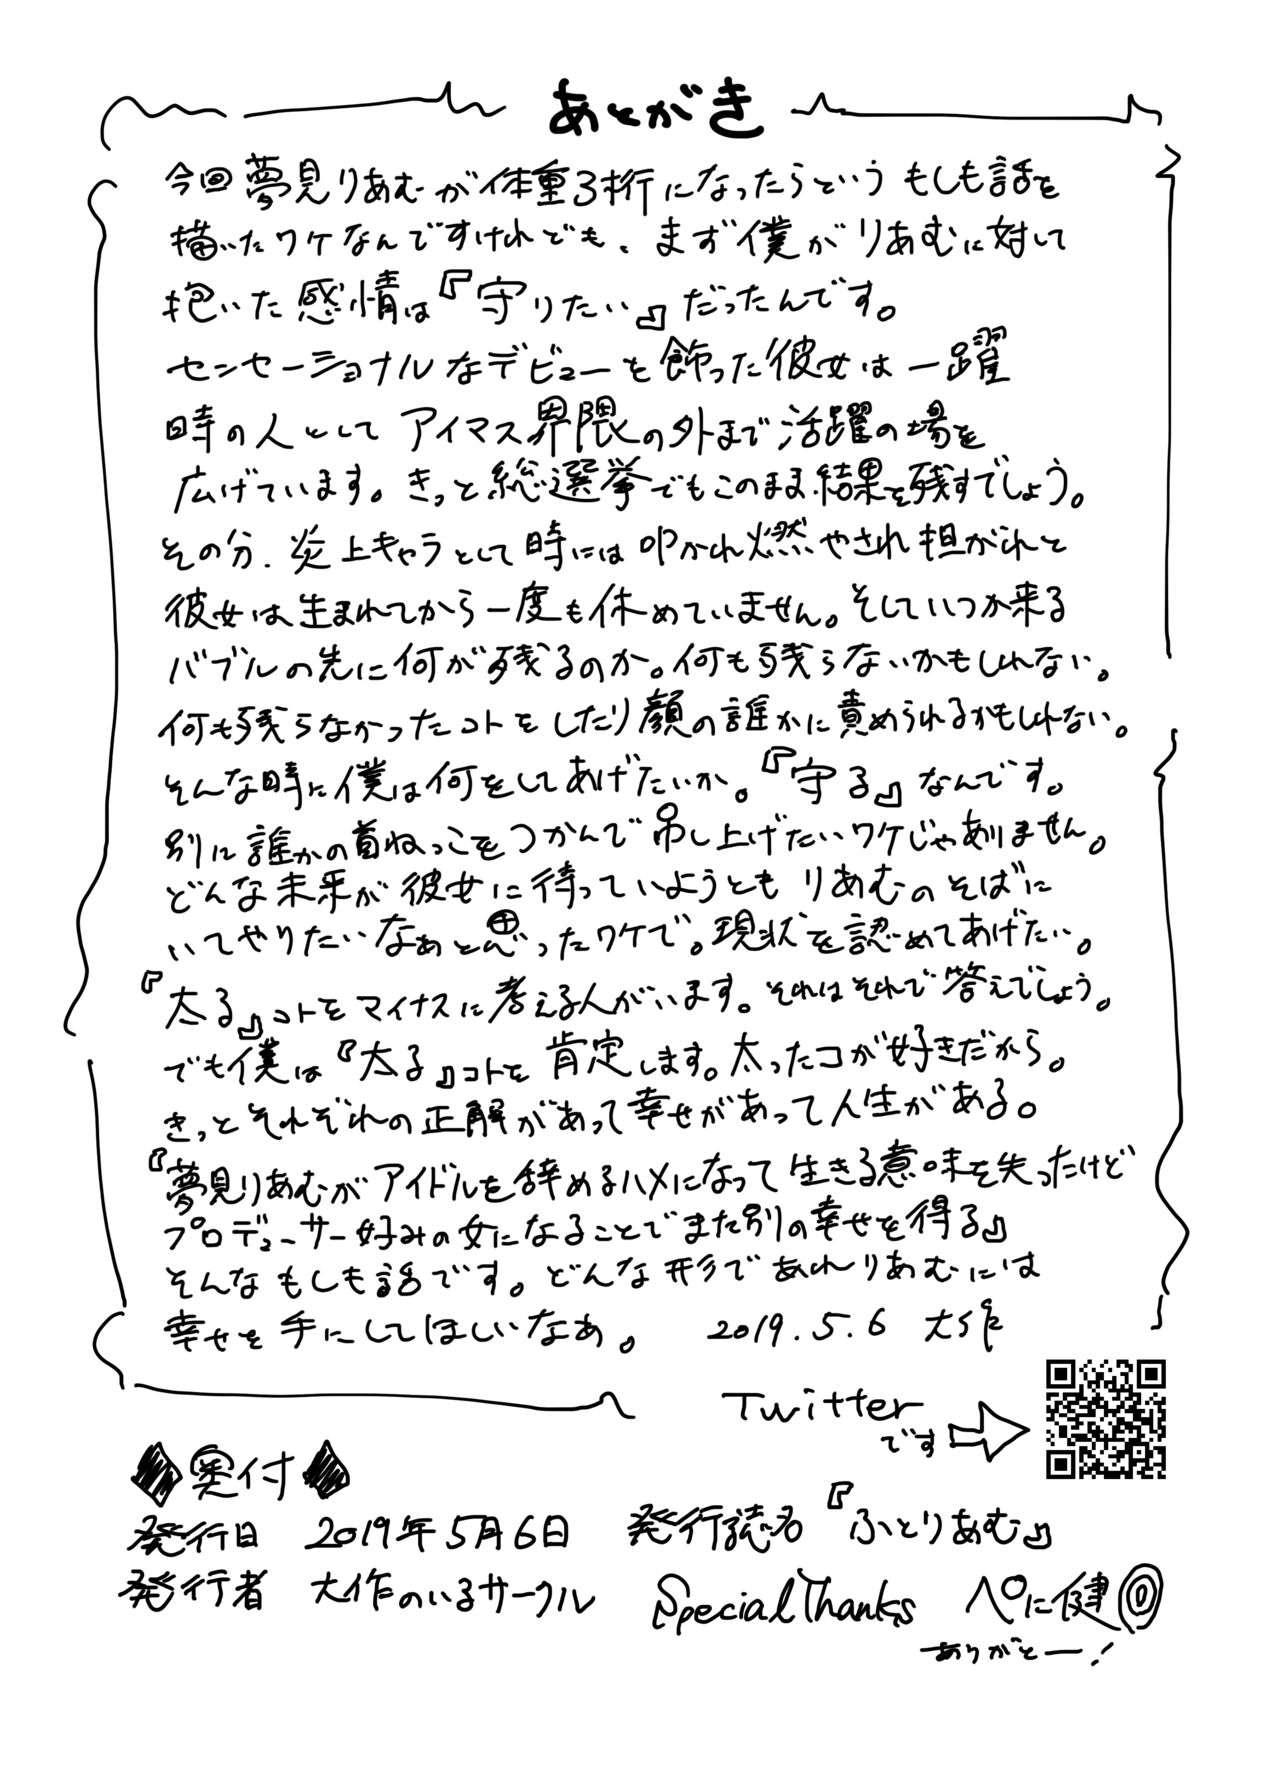 あとがき
今回夢見りあむが体重3桁になったらというもしも話を
描いたワケなんですけれども、まず僕がりあむに対して
抱いた感情は『守りたい』だったんです。
センセーショナルなデビューを飾った彼女は一躍
時の人としてアイマス界隈の外まで活躍の場を
広げています。きっと総選挙でもこのまま結果を残すでしょう。
その分、炎上キャラとして時には叩かれ燃やされ担がれと
彼女は生まれてから一度も休めていません。そしていつか来る
バブルの先に何が残るのか。何も残らないかもしれない。
何も残らなかったコトをしたり顔の誰かに責められるかもしれない。
そんな時に僕は何をしてあげたいか。『守る』なんです。
別に誰かの首ねっこをつかんで吊し上げたいワケじゃありません。
どんな未来が彼女に待っていようともりあむのそばに
いてやりたいなぁと思ったワケで。現状を認めてあげたい。
『太る』コトをマイナスに考える人がいます。それはそれで答えでしょう。
でも僕は『太る』コトを肯定します。太ったコが好きだから。
きっとそれぞれの正解があって幸せがあって人生がある。
『夢見りあむがアイドルを辞めるハメになって生きる意味を失ったけど
プロデューサー好みの女になることでまた別の幸せを得る』
そんなもしも話です。どんな形であれりあむには
幸せを手にしてほしいなあ。 2019.5.6 大作
Twitter
です
◆奥付◆
発行日 2019年5月6日 発行誌名『ふとりあむ』
発行者 大作のいるサークル Special Thanks ペに健
ありがとー!